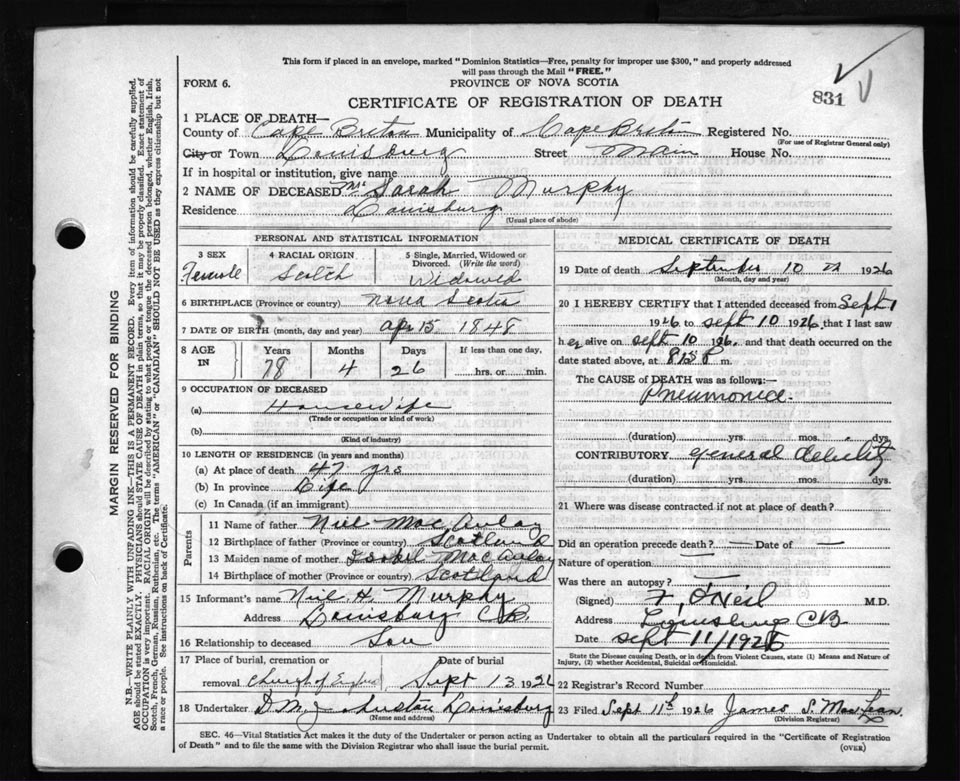 This form if placed in an envelope, marked "Dominion Statistics—Free, penalty for improper use $300," and properly addressed
will pass through the Mail "FREE."
FORM 6.
PROVINCE OF NOVA SCOTIA
831
CERTIFICATE OF REGISTRATION OF DEATH
1 PLACE OF DEATH—
County of Cape Breton Municipality of Cape Breton Registered No.
(For use of Registrar General only)
City or Town Louisburg Street Main House No.
If in hospital or institution, give name
2 NAME OF DECEASED Mrs Sarah Murphy
Residence Louisburg
(Usual place of abode)
PERSONAL AND STATISTICAL INFORMATION
3 SEX Female
4 RACIAL ORIGIN Scotch
5 Single, Married, Widowed or Divorced. (Write the word) Widowed
6 BIRTHPLACE (Province or country) Nova Scotia
7 DATE OF BIRTH (month, day and year) Apr 15 1848
8 AGE IN Years 78 Months 4 Days 26 If less than one day, hrs. or min.
9 OCCUPATION OF DECEASED
(a) Housewife
(Trade or occupation or kind of work)
(b)
(Kind of industry)
10 LENGTH OF RESIDENCE (in years and months)
(a) At place of death 47 yrs
(b) In province Life
(c) In Canada (if an immigrant)
Parents
11 Name of father Niel MacAulay
12 Birthplace of father (Province or country) Scotland
13 Maiden name of mother Isobel MacAulay
14 Birthplace of mother (Province or country) Scotland
15 Informant's name Neil H. Murphy
Address Louisburg CB.
16 Relationship to deceased Son
17 Place of burial, cremation or removal Church of England
Date of burial Sept 13 1926
18 Undertaker D.M. Louisburg
(Name and address)
MEDICAL CERTIFICATE OF DEATH
19 Date of death September 10 1926
(Month, day and year)
20 I HEREBY CERTIFY that I attended deceased from Sept 1
1926 to Sept 10 1926, that I last saw
her alive on Sept 10 1926. and that death occurred on the
date stated above, at P m.
The CAUSE of DEATH was as follows:
Pneumonia.
(duration) yrs. mos. dys
CONTRIBUTORY general debility
(duration) yrs. mos. dys.
21 Where was disease contracted if not at place of death?
Did an operation precede death? — Date of —
Nature of operation —
Was there an autopsy? —
(Signed) F. O'Neil M.D.
Address Louisburg CB
Date Sept 11/1926
State the Disease causing Death, or in death from Violent Causes, state (1) Means and Nature of Injury, (2) whether Accidental, Suicidal or Homicidal.
22 Registrar's Record Number
23 Filed Sept 11th 1926 James S. MacLean.
(Division Registrar)
SEC. 46—Vital Statistics Act makes it the duty of the Undertaker or person acting as Undertaker to obtain all the particulars required in the "Certificate of Registration
of Death" and to file the same with the Division Registrar who shall issue the burial permit.
(OVER)
MARGIN RESERVED FOR BINDING
N.B.—WRITE PLAINLY WITH UNFADING INK—THIS IS A PERMANENT RECORD. Every item of information should be carefully supplied.
AGE should be stated EXACTLY. PHYSICIANS should STATE CAUSE OF DEATH in plain terms, so that it may be properly classified. Exact statement of
OCCUPATION is very important. RACIAL ORIGIN will be described by stating to what people or tongue the deceased person belonged, whether English, Irish,
Scotch, French, German, Russian, Ruthenian, etc. The terms "AMERICAN" or "CANADIAN" SHOULD NOT BE USED as they express citizenship but not
a race or people. See instructions on back of Certificate.